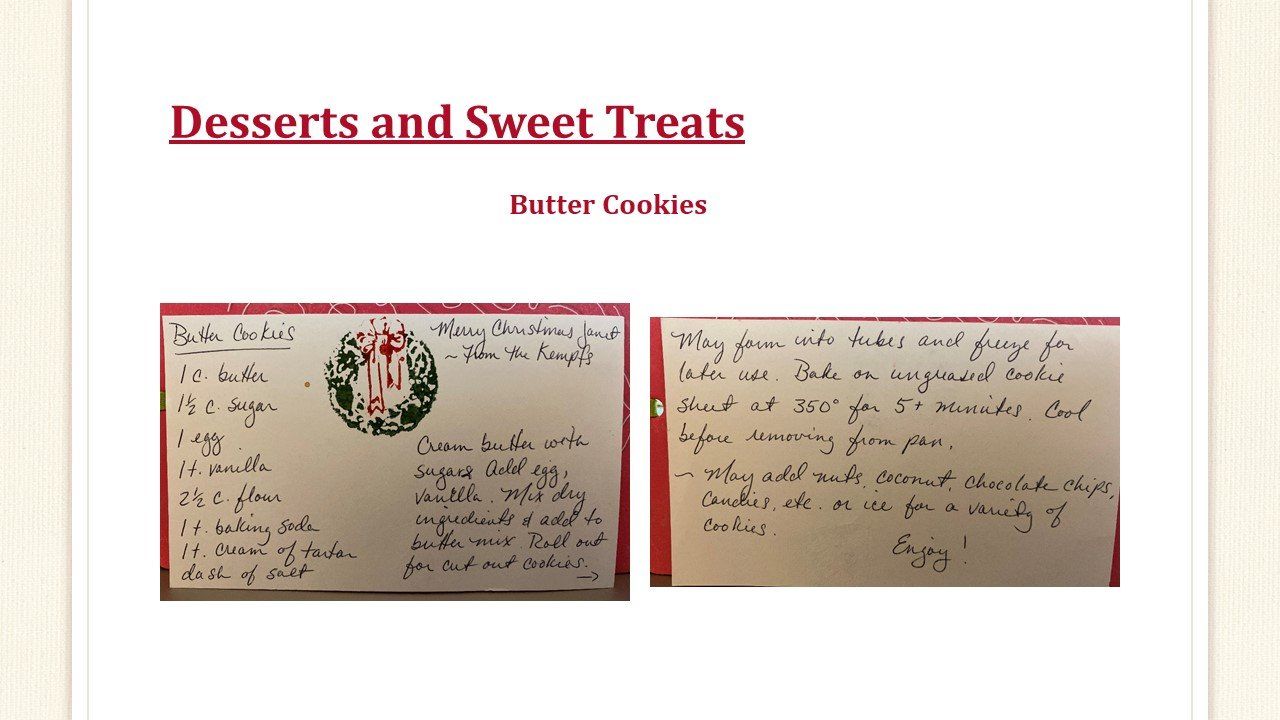 Desserts and Sweet Treats
Butter Cookies
Butter Cookies
1 c. butter
1½ c. sugar
1 egg
1 t. vanilla
2½ c. flour
1 t. baking soda
1 t. cream of tartar
dash of salt
Merry Christmas Janet
~ From the Kempfs
Cream butter with
sugars. Add egg,
vanilla. Mix dry
ingredients & add to
butter mix. Roll out
for cut out cookies.
→
May form into tubes and freeze for
later use. Bake on ungreased cookie
sheet at 350° for 5+ minutes. Cool
before removing from pan.
~ May add nuts, coconut, chocolate chips,
candies, etc. or ice for a variety of
cookies.
Enjoy!